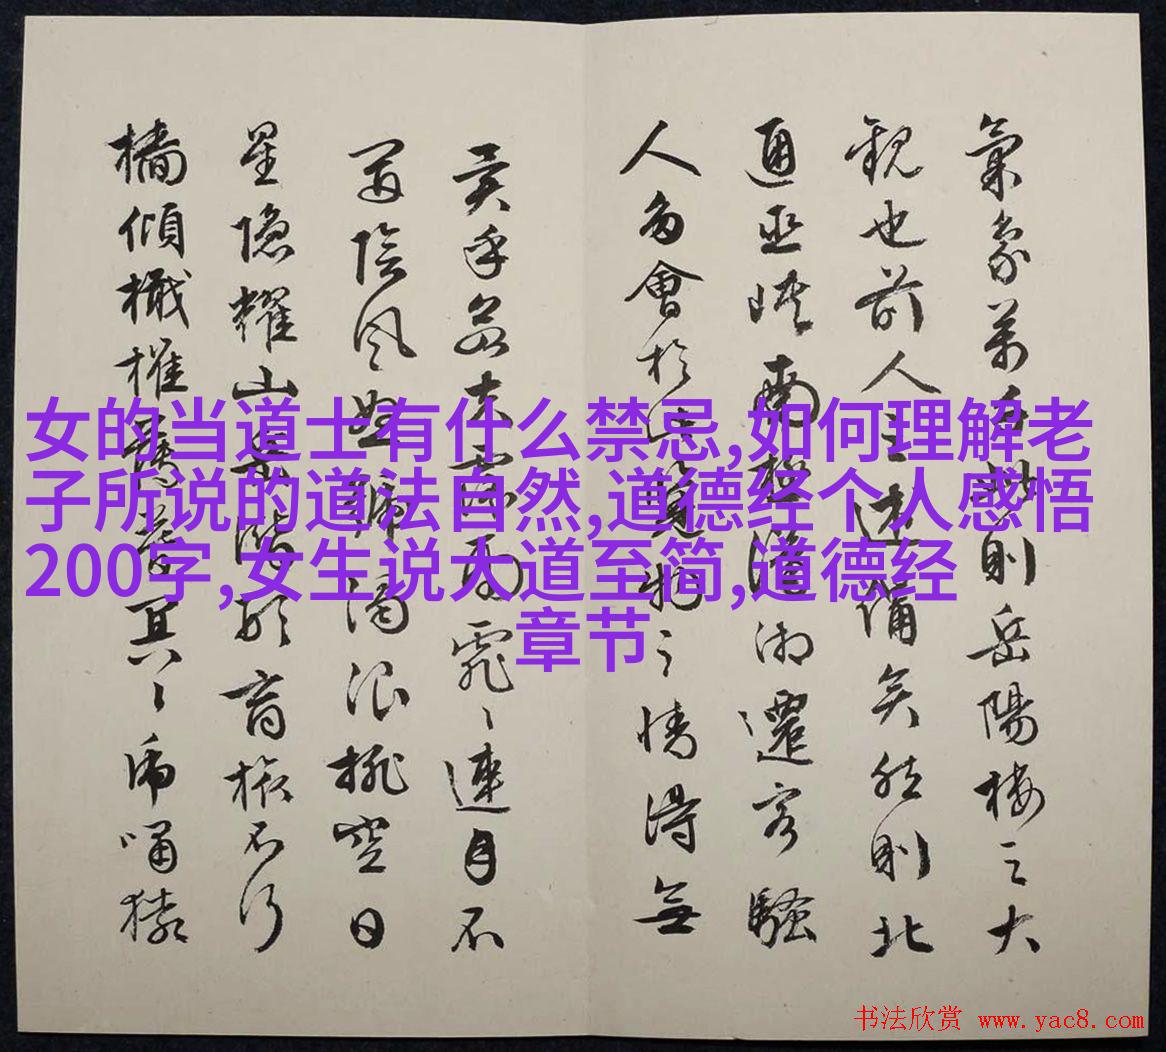 氣象萬千此則岳陽樓之大
觀也前人之述備矣然則北
通巫峽南極瀟湘遷客騷
人多會於此覽物之情得無
異乎若夫霪雨霏〻連月不
開陰風怒號濁浪排空日
星隱耀山岳潛形商旅不行
檣傾檝摧薄暮冥〻虎嘯猿
女的当道士有什么禁忌,如何理解老
子所说的道法自然,道德经个人感悟
200字,女生说大道至简,道德经
章节
书法欣赏 www.yac8.com